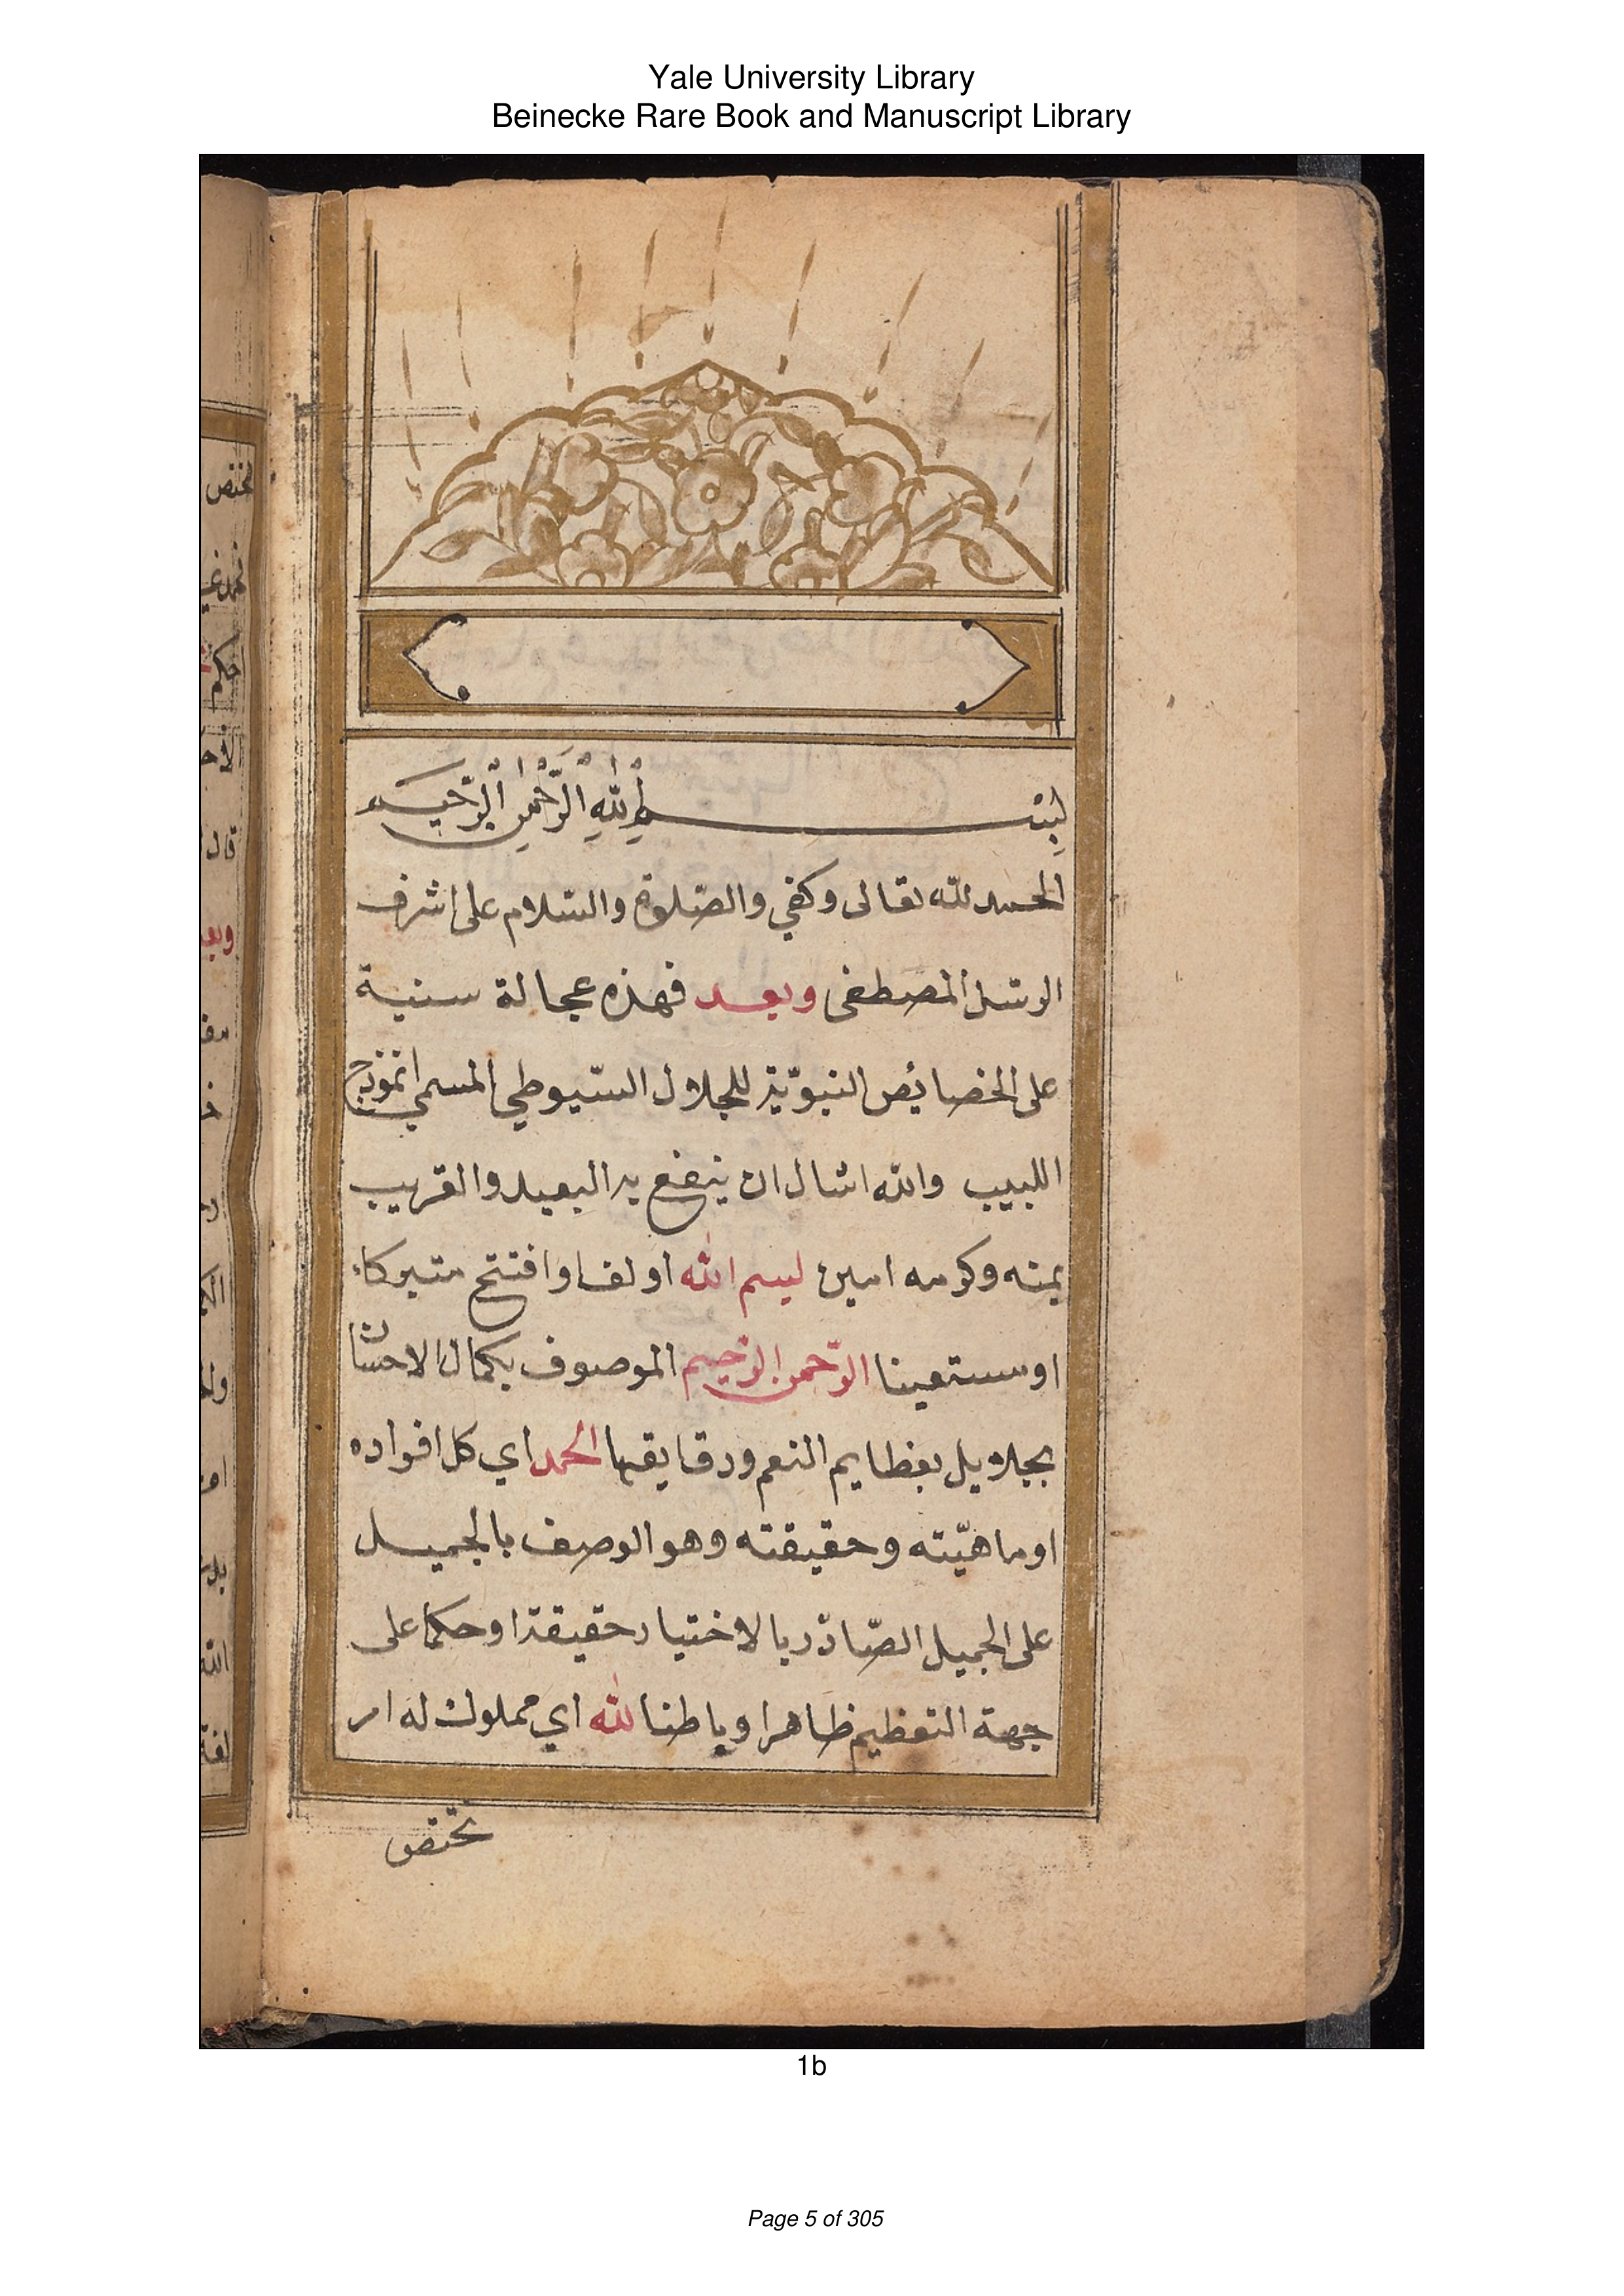 Yale University Library
Beinecke Rare Book and Manuscript Library
بِسْمِ اللهِ الرَّحْمنِ الرَّحيم
الحمد لله تعالى وكفي والصّلوة والسّلام على اشرف
الرسل المصطفى وبعد فهذه عجالة سنية
على الخصائص النبويّة للجلال السّيوطي المسمى انموذج
اللبيب والله اسال ان ينفع به البعيد والقريب
بمنه وكرمه امين بسم الله اولف اوافتتح متبركا
اومستعينا الرّحمن الرّحيم الموصوف بكمال الاحسان
بجلايل بعظايم النعم ودقايقها الحمد اي كل افراده
اوماهيّته وحقيقته وهو الوصف بالجميل
على الجميل الصّادر بالاختيار حقيقة اوحكما على
جهة التعظيم ظاهرا وباطنا لله اي مملوك له او
تختص
1b
Page 5 of 305